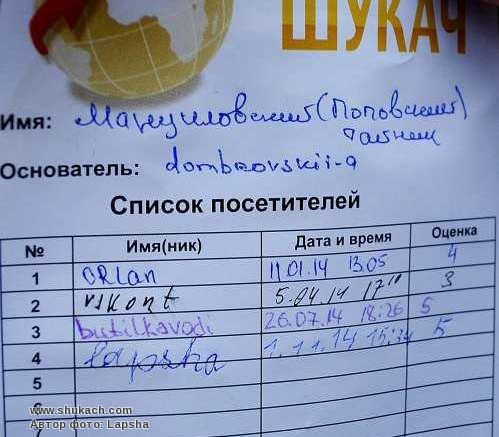 ШУКАЧ
Имя: Мануиловский (Поповский)
тайник
Основатель: dombrovskii-a
Список посетителей
№ Имя(ник) Дата и время Оценка
1 ORLan 11.01.14 13.05 4
2 viskont 5.04.14 17¹⁰ 3
3 butilkavodi 26.07.14 18:26 5
4 Lapsha 1.11.14 15:34 5
5
6
www.shukach.com
Автор фото: Lapsha